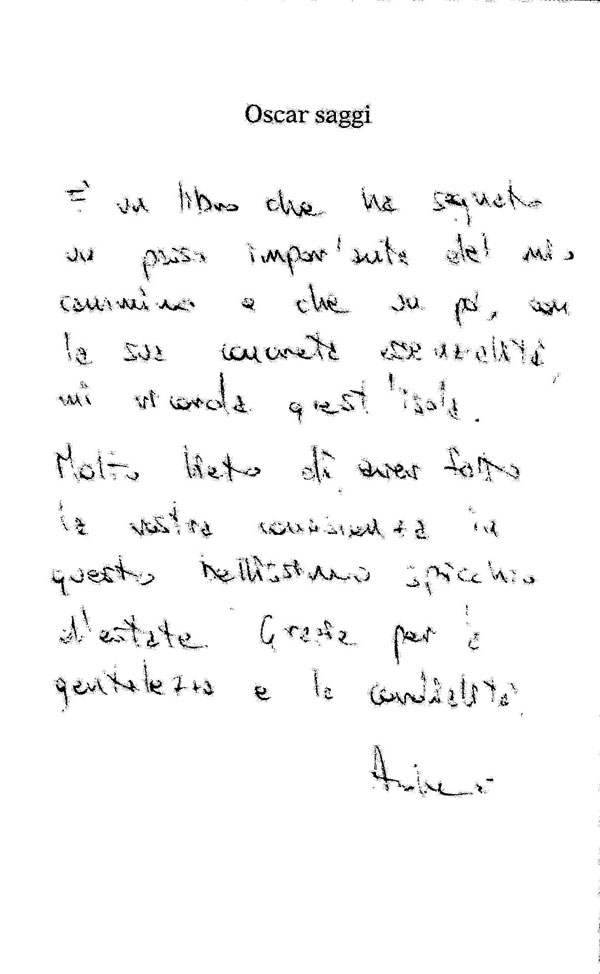 Oscar saggi
È un libro che ha segnato
un passo importante del mio
cammino e che un po', con
la sua concreta essenzialità
mi ricorda quest'isola.
Molto lieto di aver fatto
la vostra conoscenza in
questo bellissimo spicchio
d'estate. Grazie per la
gentilezza e la cordialità.